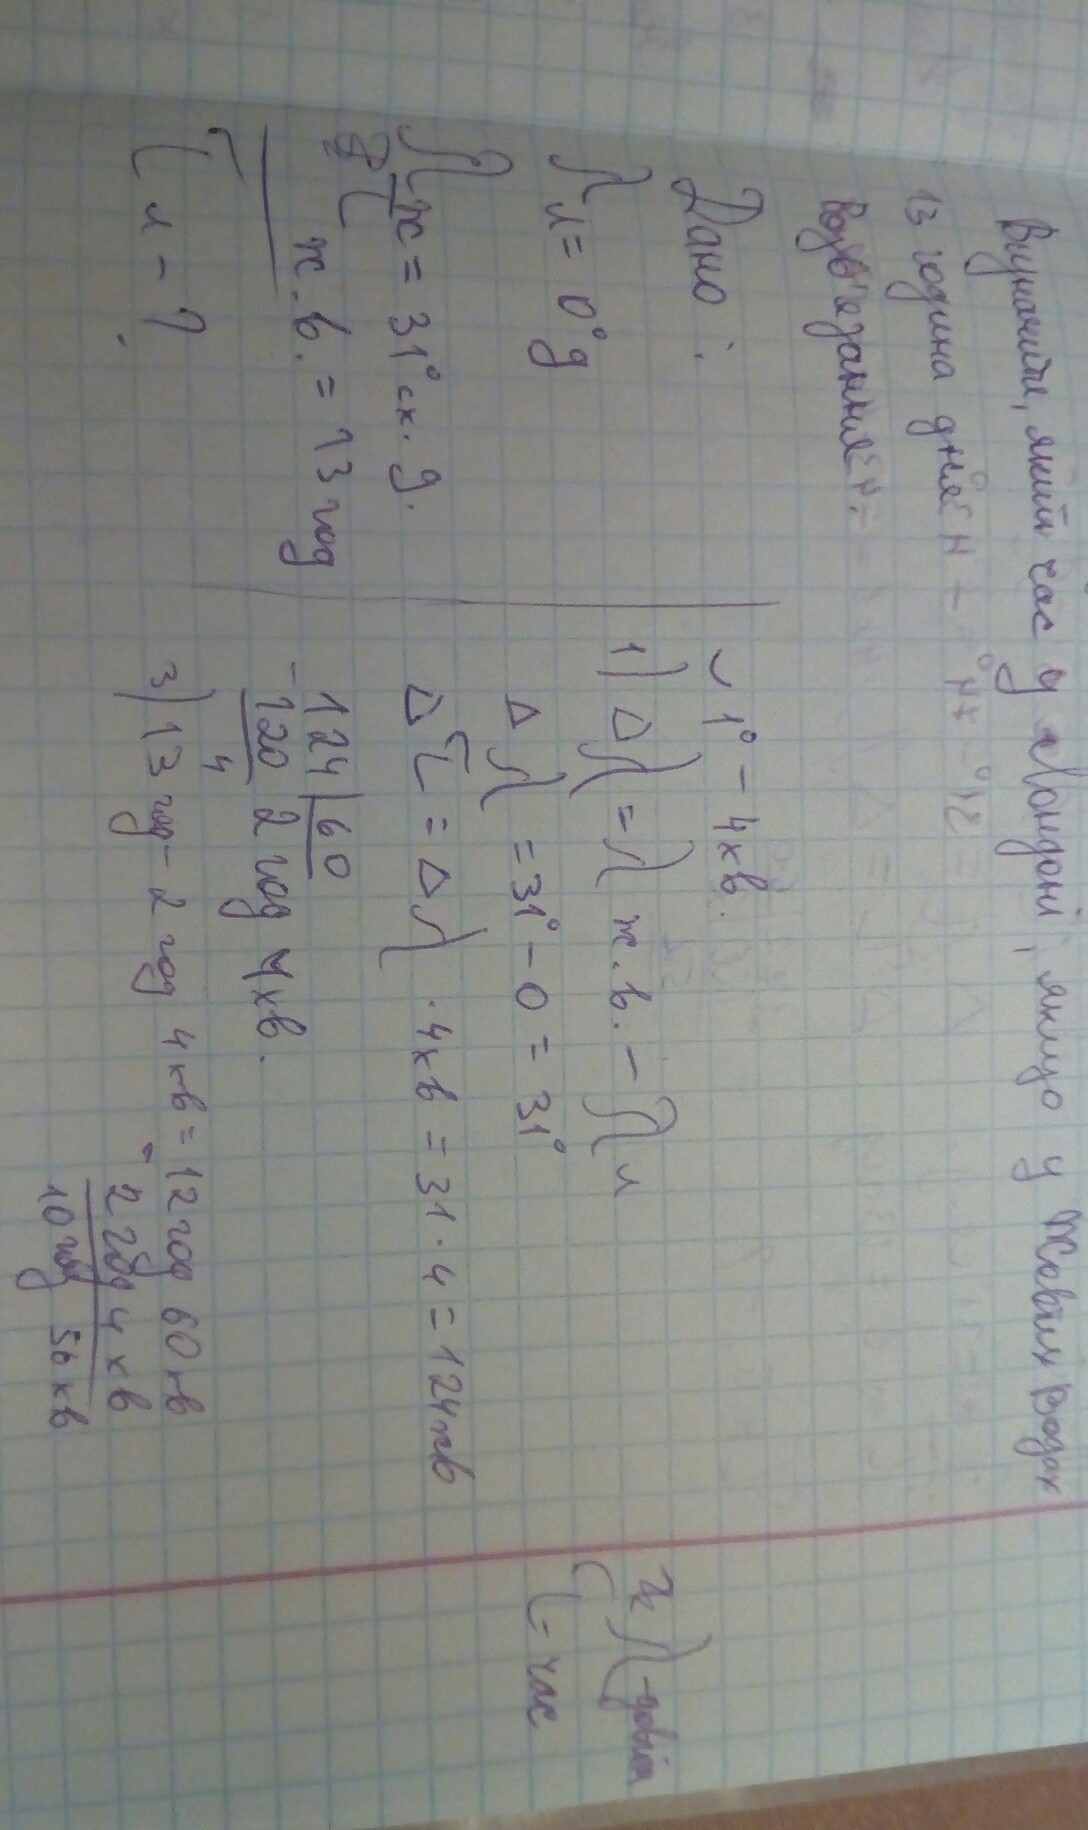 Визначити, який час у Лондоні, якщо у Жовтих Водах
13 година дня
Розв'язання:
Дано:
λ л = 0° д
λ ж = 31° сх. д.
τ ж.в. = 13 год
τ л - ?
1° - 4хв.
1) Δλ = λ ж.в. - λ л
Δλ = 31° - 0 = 31°
Δτ = Δλ · 4хв = 31 · 4 = 124хв
124 | 60
-120 2 год 4хв.
4
3) 13 год - 2 год 4хв = 12 год 60хв
- 2 год 4 хв
10 год 56 хв
λ - довгота
τ - час